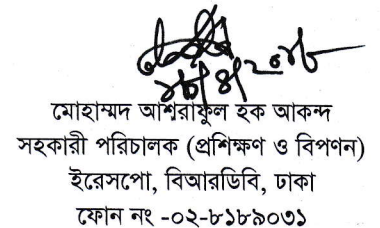 ১৮/৪/২০১৮
মোহাম্মদ আশরাফুল হক আকন্দ
সহকারী পরিচালক (প্রশিক্ষণ ও বিপণন)
ইরেসপো, বিআরডিবি, ঢাকা
ফোন নং -০২-৮১৮৯০৩১